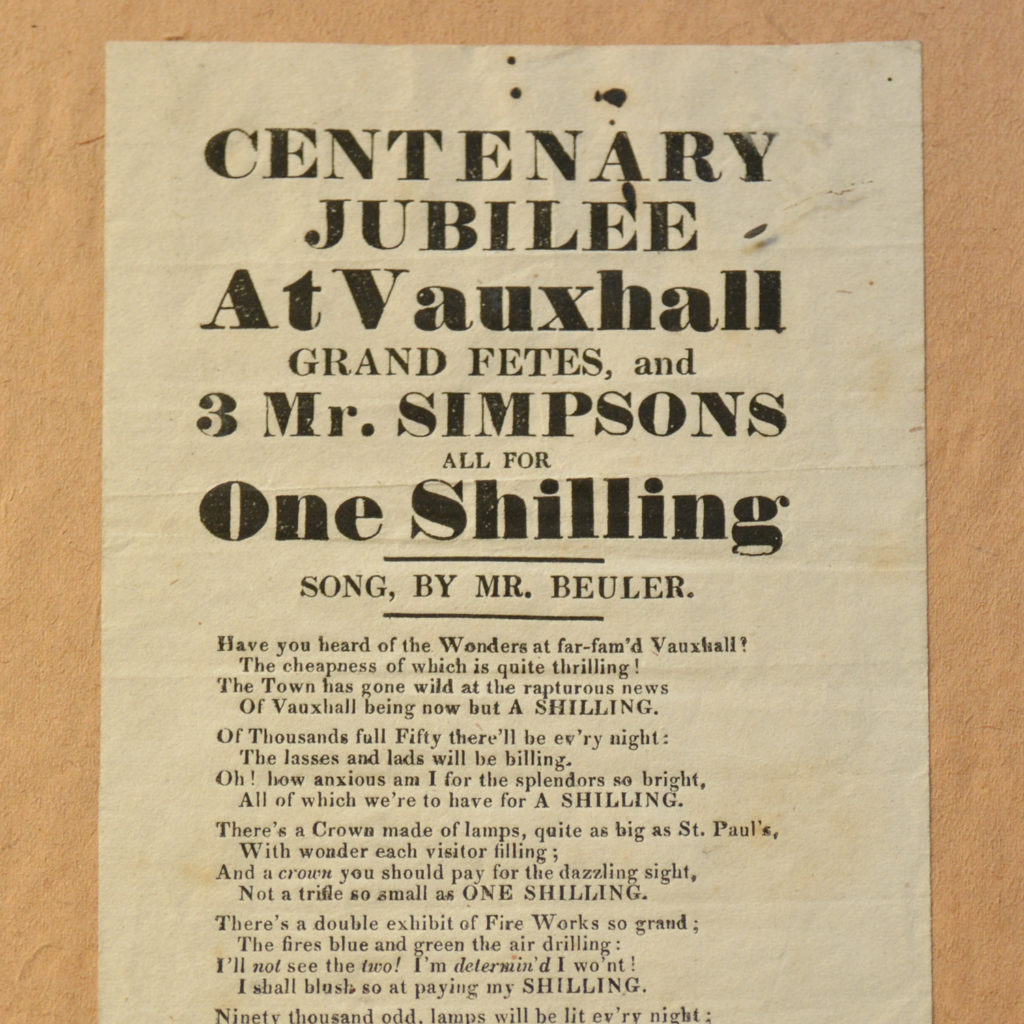 CENTENARY
JUBILEE
At Vauxhall
GRAND FETES, and
3 Mr. SIMPSONS
ALL FOR
One Shilling
SONG, BY MR. BEULER.
Have you heard of the Wonders at far-fam'd Vauxhall?
The cheapness of which is quite thrilling!
The Town has gone wild at the rapturous news
Of Vauxhall being now but A SHILLING.
Of Thousands full Fifty there'll be ev'ry night:
The lasses and lads will be billing.
Oh! how anxious am I for the splendors so bright,
All of which we're to have for A SHILLING.
There's a Crown made of lamps, quite as big as St. Paul's,
With wonder each visitor filling;
And a crown you should pay for the dazzling sight,
Not a trifle so small as ONE SHILLING.
There's a double exhibit of Fire Works so grand;
The fires blue and green the air drilling:
I'll not see the two! I'm determin'd I wo'nt!
I shall blush so at paying my SHILLING.
Ninety thousand odd, lamps will be lit ev'ry night;